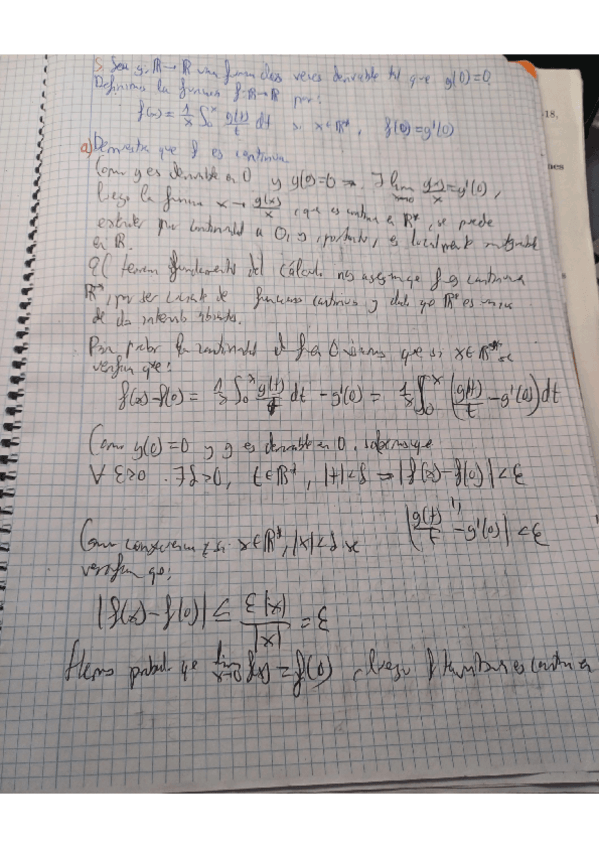 5. Sea g: ℝ → ℝ una función dos veces derivable tal que g(0)=0.
Definimos la función f: ℝ → ℝ por:
f(x) = 1/x ∫₀ˣ g(t)/t dt si x∈ℝ*, f(0)=g'(0)
a) Demuestra que f es continua
Como g es derivable en 0 y g(0)=0 ⇒ ∃ lim x→0 g(x)/x = g'(0),
luego la función x → g(x)/x, que es continua en ℝ*, se puede
extender por continuidad a 0, y, por tanto, es localmente integrable
en ℝ.
El teorema fundamental del cálculo nos asegura que f es continua
ℝ*, por ser cociente de funciones continuas y dado que ℝ* es unión
de dos intervalos abiertos.
Para probar la continuidad de f en 0 que si x∈ℝ* se
verifica que:
f(x)-f(0) = 1/x ∫₀ˣ g(t)/t dt - g'(0) = 1/x ∫₀ˣ (g(t)/t - g'(0)) dt
Como g(0)=0 y g es derivable en 0, sabemos que
∀ ε>0 ∃ δ>0, t∈ℝ*, |t|<δ ⇒ |f(x)-f(0)|<ε
|g(t)/t - g'(0)| <ε
Como consecuencia si x∈ℝ*, |x|<δ se
verifica que:
|f(x)-f(0)| ≤ ε|x|/|x| = ε
Hemos probado que lim x→0 f(x) = f(0), luego f también es continua
18,